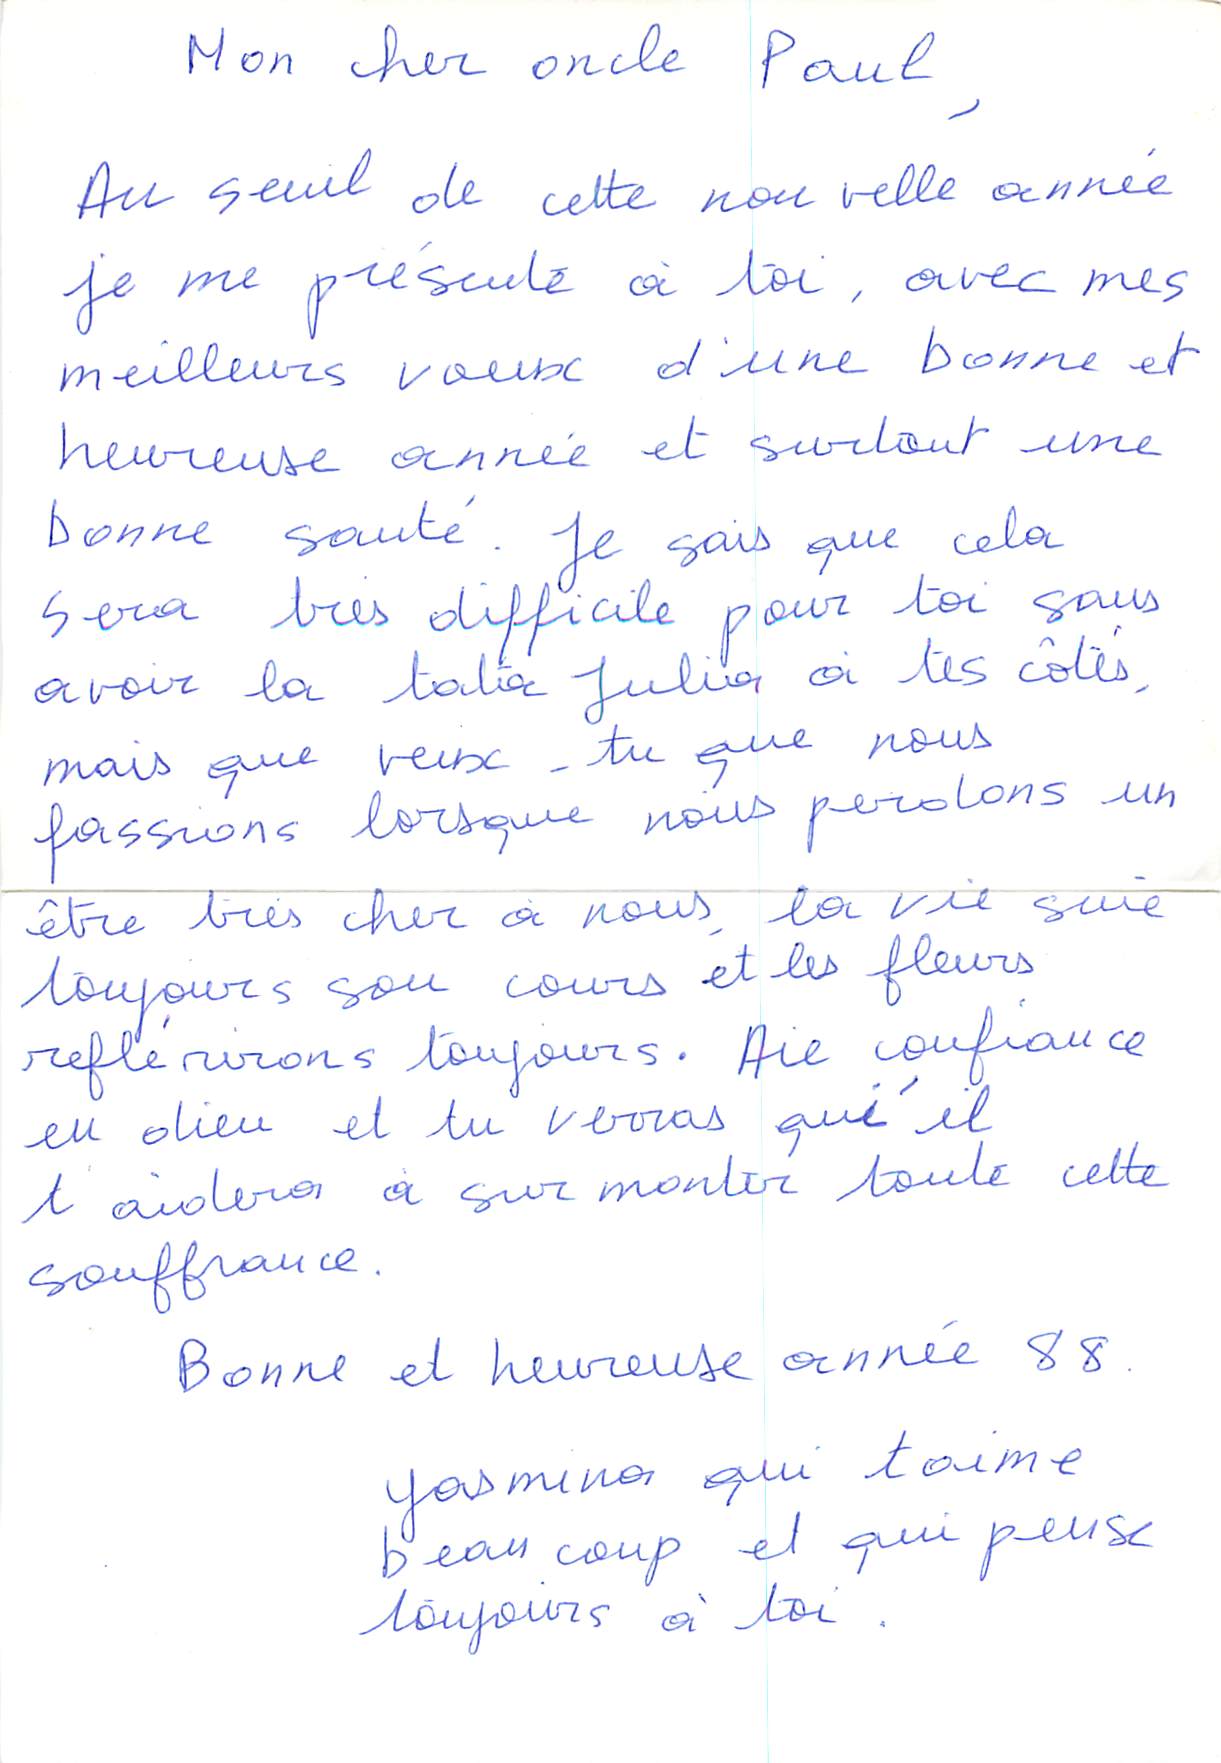 Mon cher oncle Paul,
Au seuil de cette nouvelle année
je me présente à toi, avec mes
meilleurs voeux d'une bonne et
heureuse année et surtout une
bonne santé. Je sais que cela
sera très difficile pour toi sans
avoir la tatia Julia à tes côtés,
mais que veux-tu que nous
fassions lorsque nous perdons un
être très cher à nous, la vie suie
toujours son cours et les fleurs
reflérirons toujours. Aie confiance
en dieu et tu verras qu'il
t'aidera à surmonter toute cette
souffrance.
Bonne et heureuse année 88.
Yasmina qui t'aime
beaucoup et qui pense
toujours à toi.